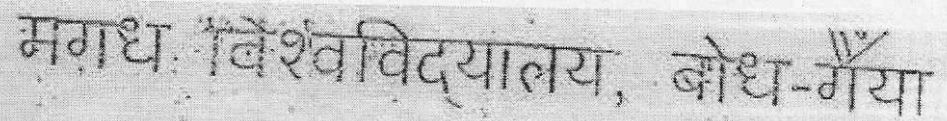 मगध विश्वविद्यालय, बोध-गया